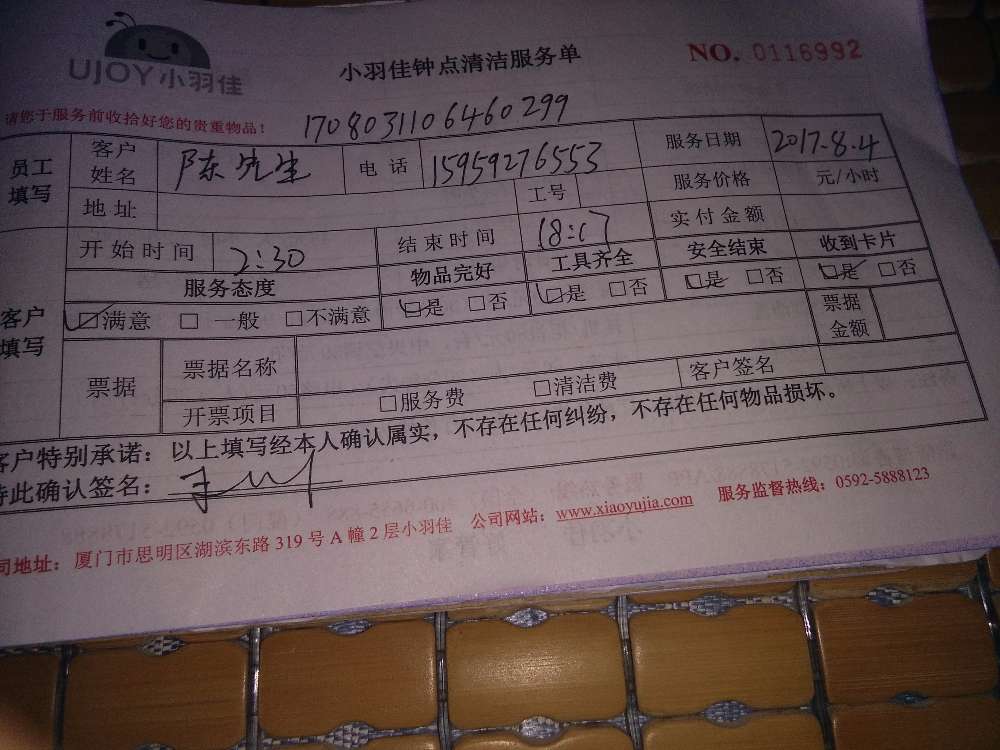 UJOY小羽佳
小羽佳钟点清洁服务单
NO. 0116992
请您于服务前收拾好您的贵重物品！
1708031106460299
员工填写 客户姓名 陈先生 电话 15959276553 服务日期 2017.8.4
地址 工号 服务价格 元/小时
客户填写 开始时间 2:30 结束时间 18:17 实付金额
服务态度 物品完好 工具齐全 安全结束 收到卡片
☑满意 □ 一般 □不满意 ☑是 □否 ☑是 □否 ☑是 □否 ☑是 □否
票据 票据名称 票据金额
开票项目 □服务费 □清洁费 客户签名
客户特别承诺：以上填写经本人确认属实，不存在任何纠纷，不存在任何物品损坏。
特此确认签名：
公司地址：厦门市思明区湖滨东路 319 号 A 幢 2 层小羽佳 公司网站：www.xiaoyujia.com 服务监督热线：0592-5888123